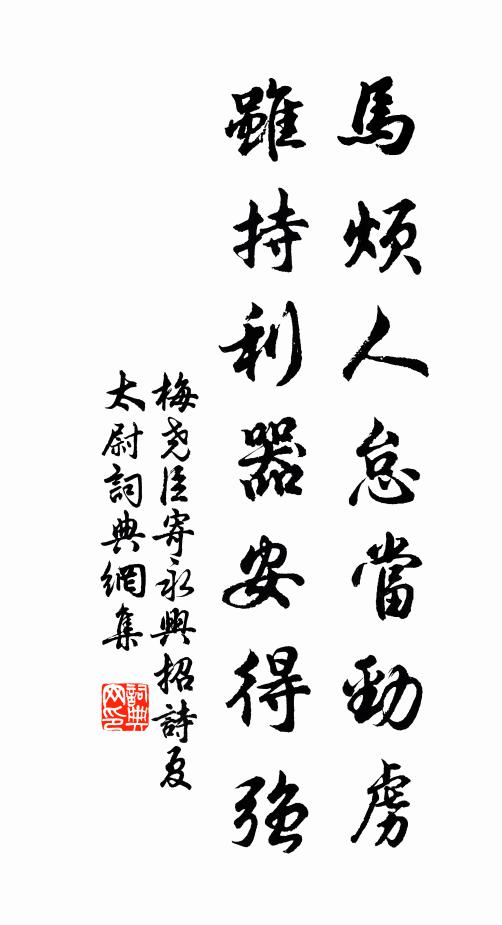 馬煩人怠當勁虜
雖持利器安得強
梅堯臣寄永興招詩夏
太尉詞典網集
詞典網印